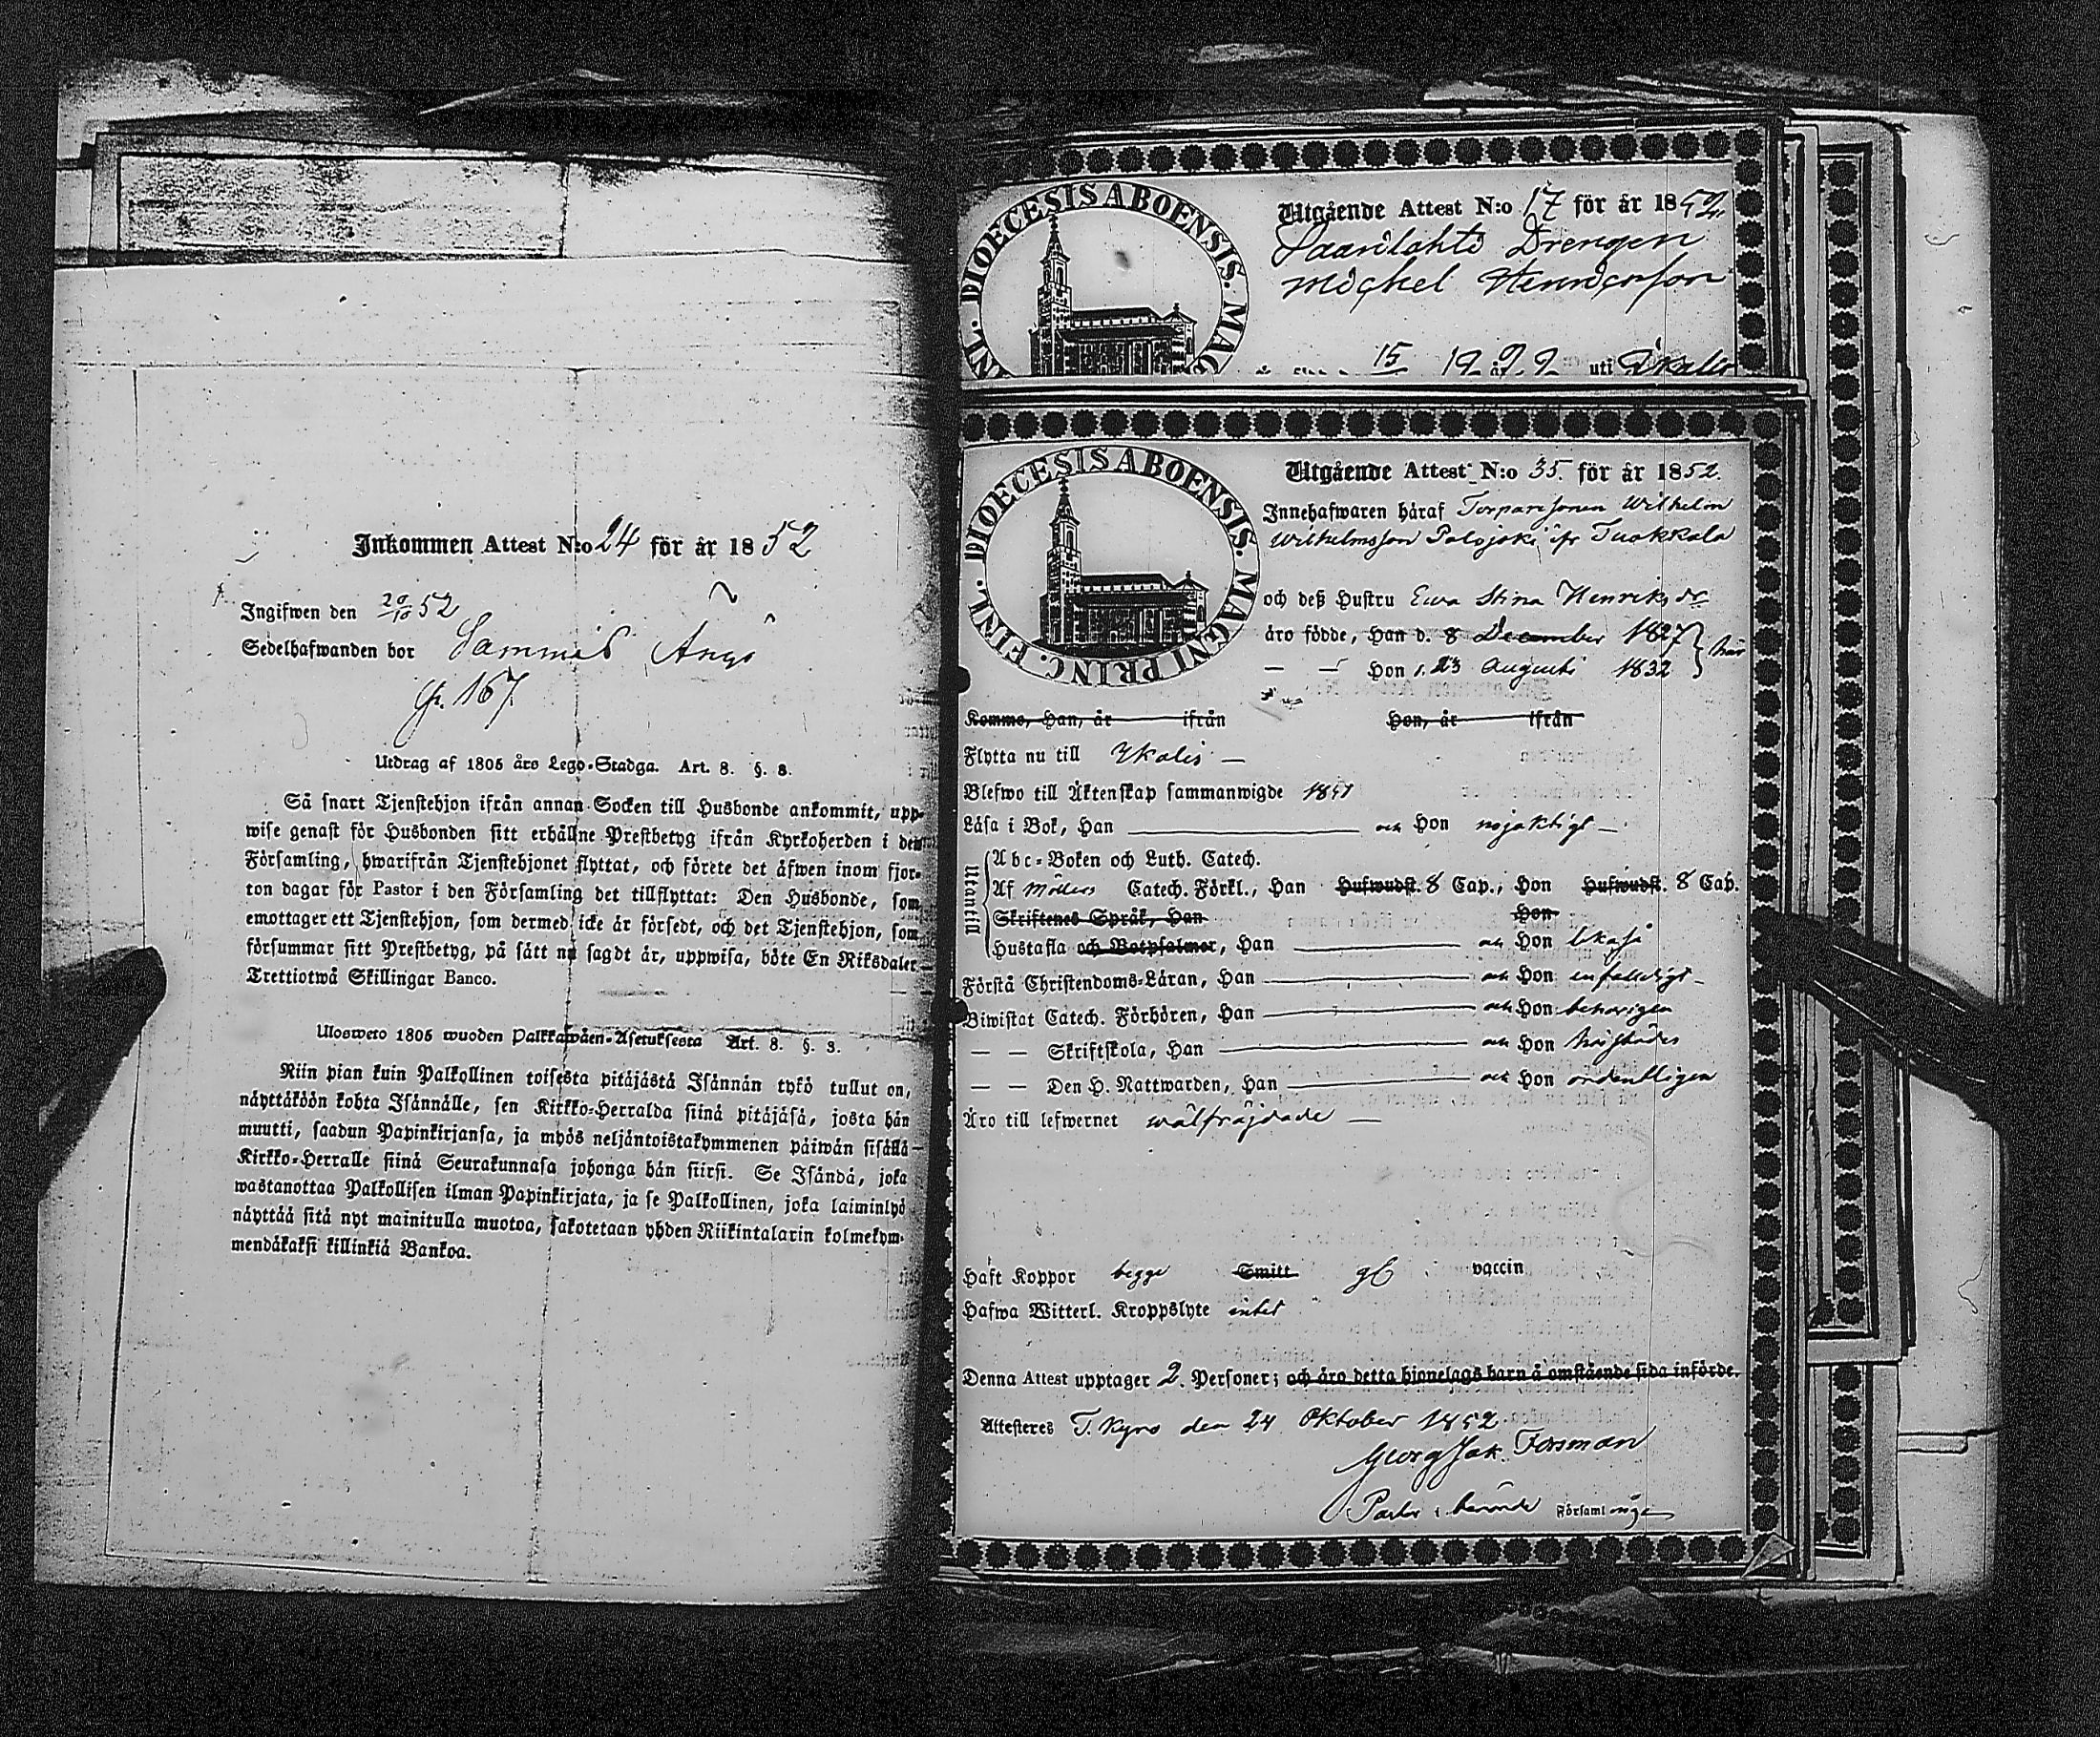 Inkommen Attest N:o 24 för år 1852
Ingifwen den 20/10 52
Sedelhafwanden bor Sammis
167
Utdrag af 1805 års Lego-Stadga. Art. 8. §. 8.
Så snart Tjenstehjon ifrån annan Socken till Husbonde ankommit, upp-
wise genast för Husbonden sitt erhållne Prestbetyg ifrån Kyrkoherden i den
Församling, hwarifrån Tjenstehjonet flyttat, och förete det äfwen inom fjor-
ton dagar för Pastor i den Församling det tillflyttat: Den Husbonde, som
emottager ett Tjenstehjon, som dermed icke är försedt, och det Tjenstehjon, som
försummar sitt Prestbetyg, på sätt nu sagdt är, uppwisa, böte En Riksdaler
Trettiotwå Skillingar Banco.
Ulosweto 1805 wuoden Palkkawäen-Asetuksesta Art. 8. §. 3.
Niin pian kuin Palkollinen toisesta pitäjästä Isännän tykö tullut on,
näyttäköön kohta Isännälle, sen Kirkko-Herralda siinä pitäjäsä, josta hän
muutti, saadun Papinkirjansa, ja myös neljäntoistakymmenen päiwän sisällä
Kirkko-Herralle siinä Seurakunnasa johonga hän siirsi. Se Isändä, joka
wastanottaa Palkollisen ilman Papinkirjata, ja se Palkollinen, joka laiminlyö
näyttää sitä nyt mainitulla muotoa, sakotetaan yhden Riikintalarin kolmekym-
mendäkaksi killinkiä Bankoa.
DIOECESIS ABOENSIS. MAG
INL.
Utgående Attest N:o 17 för år 1852.
Saarilahti Drengen
Michel Henricsson
15 uti Ikalis
DIOECESIS ABOENSIS. MAGNI PRINC. FINL.
Utgående Attest N:o 35. för år 1852.
Innehafwaren häraf Torparesonen Wilhelm
Wilhelmsson Palojoki ifr Tuokkola
och deß Hustru Ewa Stina Henriksdr
äro födde, Han d. 8 December 1827 } här
— — Hon d. 23 Augusti 1832
Komme, Han, år ifrån Hon, år ifrån
Flytta nu till Ikalis —
Blefwo till Äktenskap sammanwigde 1851
Läsa i Bok, Han och Hon nöjaktigt —
Utantill
Abc-Boken och Luth. Catech.
Af Möllers Catech. Förkl., Han Hufwudst. 8 Cap.; Hon Hufwudst. 8 Cap.
Skriftenes Språk, Han Hon
Hustafla och Botpsalmer, Han och Hon
Förstå Christendoms-Läran, Han och Hon enfaldigt —
Biwistat Catech. Förhören, Han och Hon behörigen
— — Skriftskola, Han och Hon
— — Den H. Nattwarden, Han och Hon ordentligen
Äro till lefwernet wälfräjdade —
Haft Koppor begge Smitt vaccin
Hafwa Witterl. Kroppslyte intet
Denna Attest upptager 2. Personer; och äro detta hjonelags barn å omstående sida införde.
Attesteres T. Kyro den 24 Oktober 1852.
Georg Jak. Forsman
Pastor i berörde Församlingen